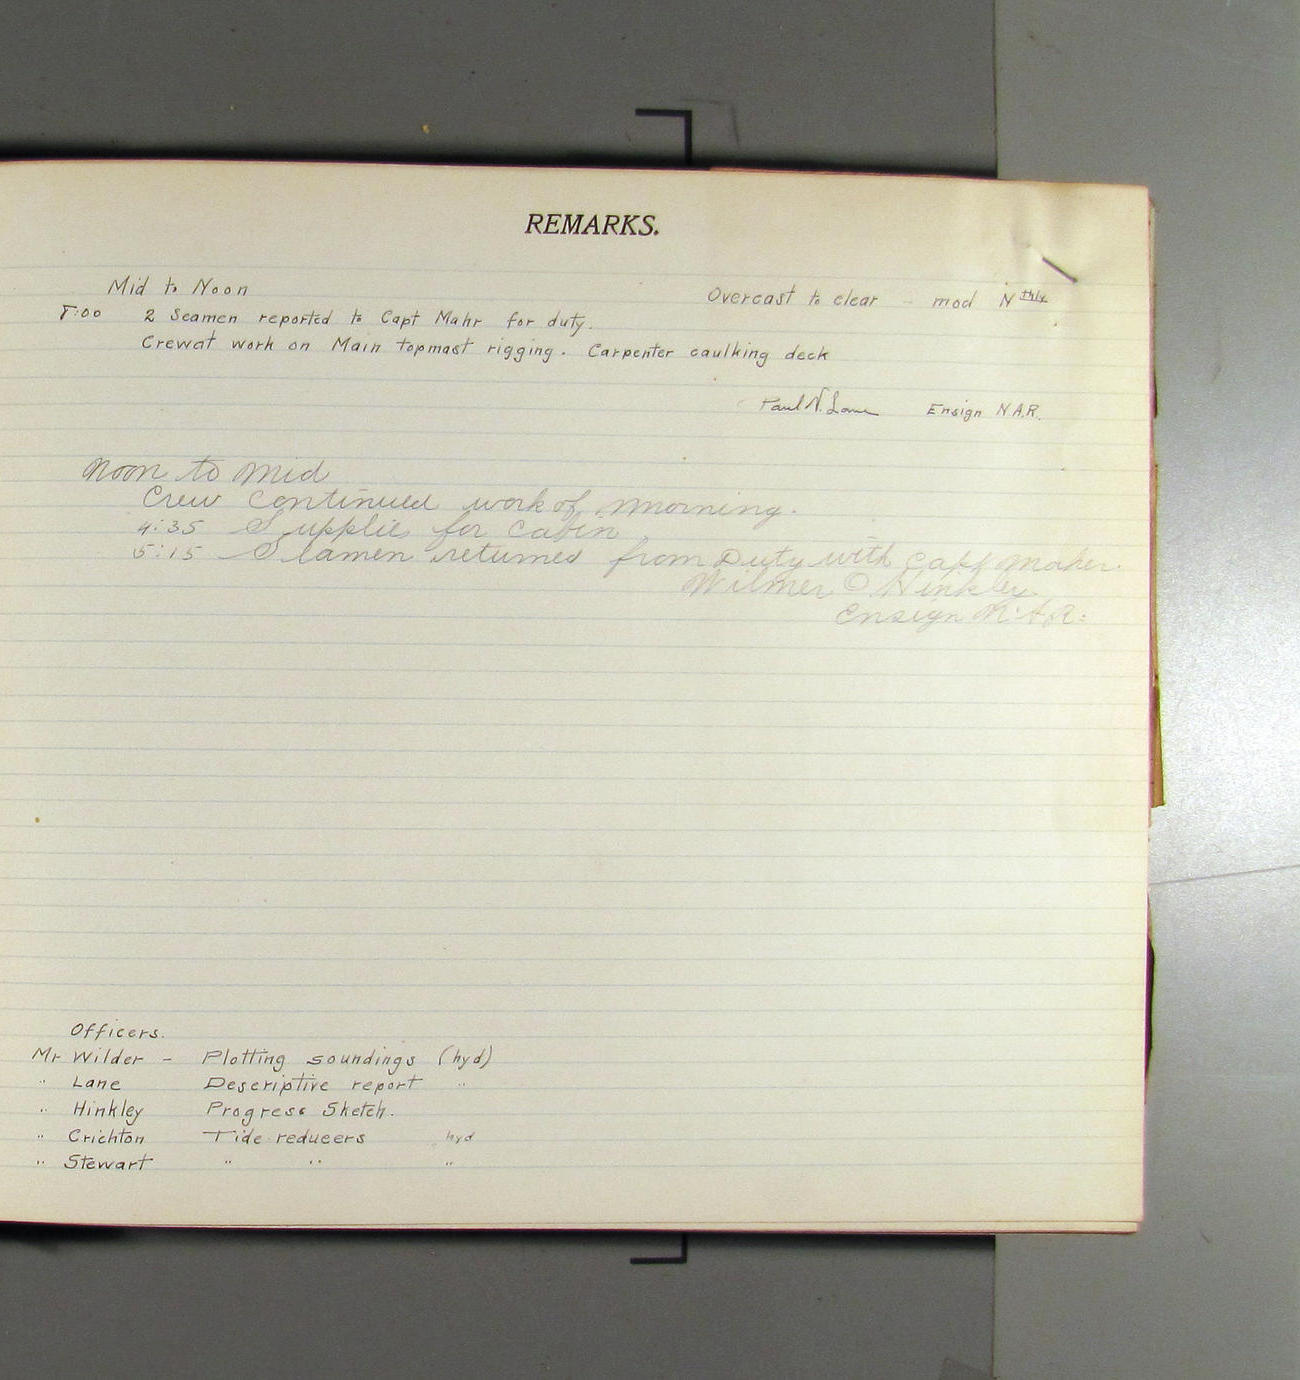 REMARKS.
Mid to Noon Overcast to clear - mod Nthly
8:00 2 Seamen reported to Capt Mahr for duty.
Crew at work on Main topmast rigging. Carpenter caulking deck
Paul N. Lane Ensign N.A.R.
Noon to Mid
Crew continued work of morning.
4:35 Supplies for Cabin
5:15 Seamen returned from Duty with Capt Maher.
Wilmer O Hinkley
Ensign N.A.R.
Officers.
Mr Wilder - Plotting soundings (hyd)
" Lane Descriptive report "
" Hinkley Progress Sketch.
" Crichton Tide reducers hyd
" Stewart " " "